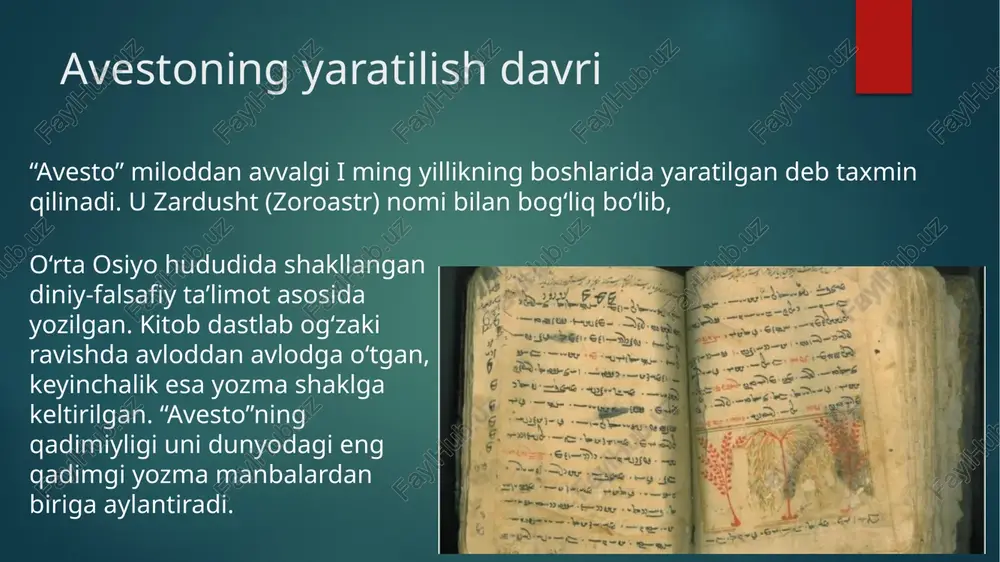 Avestoning yaratilish davri
“Avesto” miloddan avvalgi I ming yillikning boshlarida yaratilgan deb taxmin
qilinadi. U Zardusht (Zoroastr) nomi bilan bog‘liq bo‘lib,
O‘rta Osiyo hududida shakllangan
diniy-falsafiy ta’limot asosida
yozilgan. Kitob dastlab og‘zaki
ravishda avloddan avlodga o‘tgan,
keyinchalik esa yozma shaklga
keltirilgan. “Avesto”ning
qadimiyligi uni dunyodagi eng
qadimgi yozma manbalardan
biriga aylantiradi.
FaylHub.uz